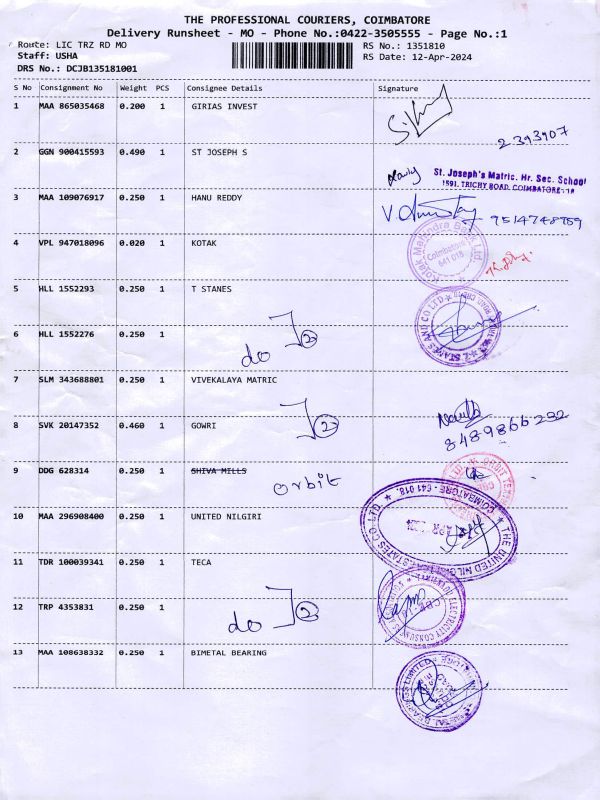 THE PROFESSIONAL COURIERS, COIMBATORE
Delivery Runsheet - MO - Phone No.:0422-3505555 - Page No.:1
Route: LIC TRZ RD MO RS No.: 1351810
Staff: USHA RS Date: 12-Apr-2024
DRS No.: DCJB135181001
S No Consignment No Weight PCS Consignee Details Signature
1 MAA 865035468 0.200 1 GIRIAS INVEST
2393907
2 GGN 900415593 0.490 1 ST JOSEPH S
St. Joseph's Matric. Hr. Sec. School
1591, TRICHY ROAD, COIMBATORE-18
3 MAA 109076917 0.250 1 HANU REDDY
9514748959
4 VPL 947018096 0.020 1 KOTAK
Kotak Mahindra Bank Ltd
Coimbatore
641 018
5 HLL 1552293 0.250 1 T STANES
6 HLL 1552276 0.250 1
do 2
7 SLM 343688801 0.250 1 VIVEKALAYA MATRIC
8 SVK 20147352 0.460 1 GOWRI
2
8489866232
9 DDG 628314 0.250 1 SHIVA MILLS
orbit
10 MAA 296908400 0.250 1 UNITED NILGIRI
COIMBATORE - 641 018.
11 TDR 100039341 0.250 1 TECA
12 TRP 4353831 0.250 1
do 2
13 MAA 108638332 0.250 1 BIMETAL BEARING